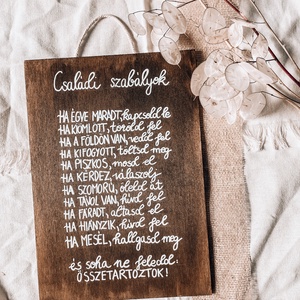 Családi szabályok
HA ÉGVE MARADT, kapcsold le
HA KIÖMLÖTT, töröld fel
HA A FÖLDÖN VAN, vedd fel
HA KIFOGYOTT, töltsd meg
HA PISZKOS, mosd el
HA KÉRDEZ, válaszolj
HA SZOMORÚ, öleld át
HA TÁVOL VAN, hívd fel
HA FÁRADT, altasd el
HA HIÁNYZIK, hívd fel
HA MESÉL, hallgasd meg
és soha ne feledd:
ÖSSZETARTOZTOK!